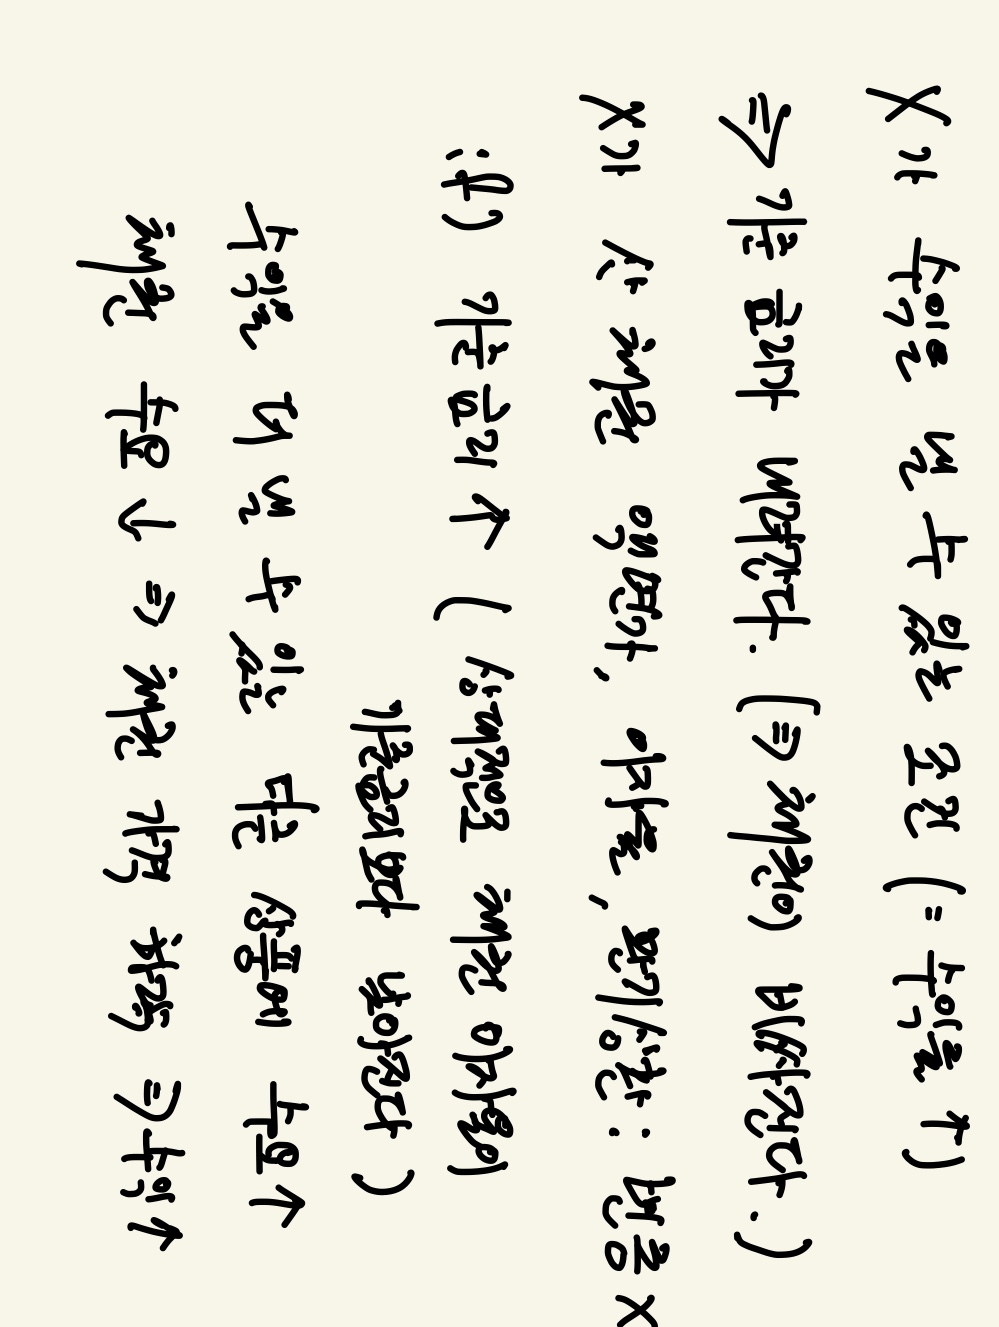 X가 수익을 낼 수 있는 조건 (= 수익률 ↑)
⇒ 기준 금리가 내려간다. (⇒ 채권이 비싸진다.)
X가 산 채권 액면가, 이자율, 만기상환 : 변동 X
if) 기준금리 ↑ ( 상대적으로 채권 이자율이
기준금리보다 낮아진다 )
수익을 더 낼 수 있는 다른 상품에 수요↑
채권 수요 ↓ ⇒ 채권 가격 하락 ⇒ 수익↑